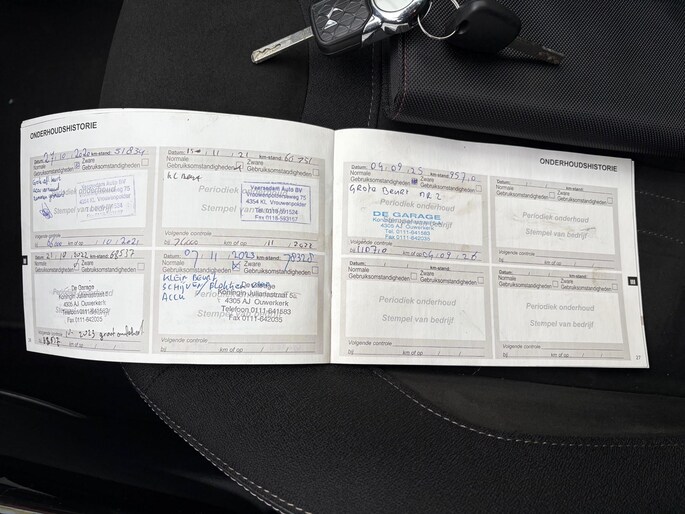 ONDERHOUDSHISTORIE
Datum: 27.10.2020 km-stand: 51834
Normale Zware
Gebruiksomstandigheden
Periodiek onderhoud
Stempel van bedrijf
Volgende controle
bij km of op 10.2021
Datum: 15.11.21 km-stand: 60.751
Normale Zware
Gebruiksomstandigheden
Periodiek
Stempel van
Vrouwenpolderseweg 75
4354 KL Vrouwenpolder
Tel. 0118-591524
Volgende controle
bij 76000 km of op 11.2022
Datum: 21.10.2022 km-stand: 68537
Normale Zware
Gebruiksomstandigheden
De Garage
Koningin Julianastraat 5c
4305 AJ Ouwerkerk
Telefoon 0111-641583
Fax 0111-642035
Volgende controle 10-2023 groot onderhoud
Datum: 07.11.2023 km-stand: 78328
Normale Zware
Gebruiksomstandigheden
Klein Beurt
Schijven / Blokken
Accu
De Garage
Koningin Julianastraat 5c
4305 AJ Ouwerkerk
Telefoon 0111-641583
Fax 0111-642035
Volgende controle
bij km of op
ONDERHOUDSHISTORIE
Datum: 04.09.25 km-stand:
Normale Zware
Gebruiksomstandigheden
Grote Beurt nr 2
Periodiek onderhoud
DE GARAGE
4305 AJ Ouwerkerk
Tel. 0111-641583
Fax 0111-642035
Volgende controle
bij 110710 km of op 04.09.26
Datum: km-stand:
Normale Zware
Gebruiksomstandigheden
Periodiek onderhoud
Stempel van bedrijf
Volgende controle
bij km of op
Datum: km-stand:
Normale Zware
Gebruiksomstandigheden
Periodiek onderhoud
Stempel van bedrijf
Volgende controle
bij km of op
Datum: km-stand:
Normale Zware
Gebruiksomstandigheden
Periodiek onderhoud
Stempel van bedrijf
Volgende controle
bij km of op
27